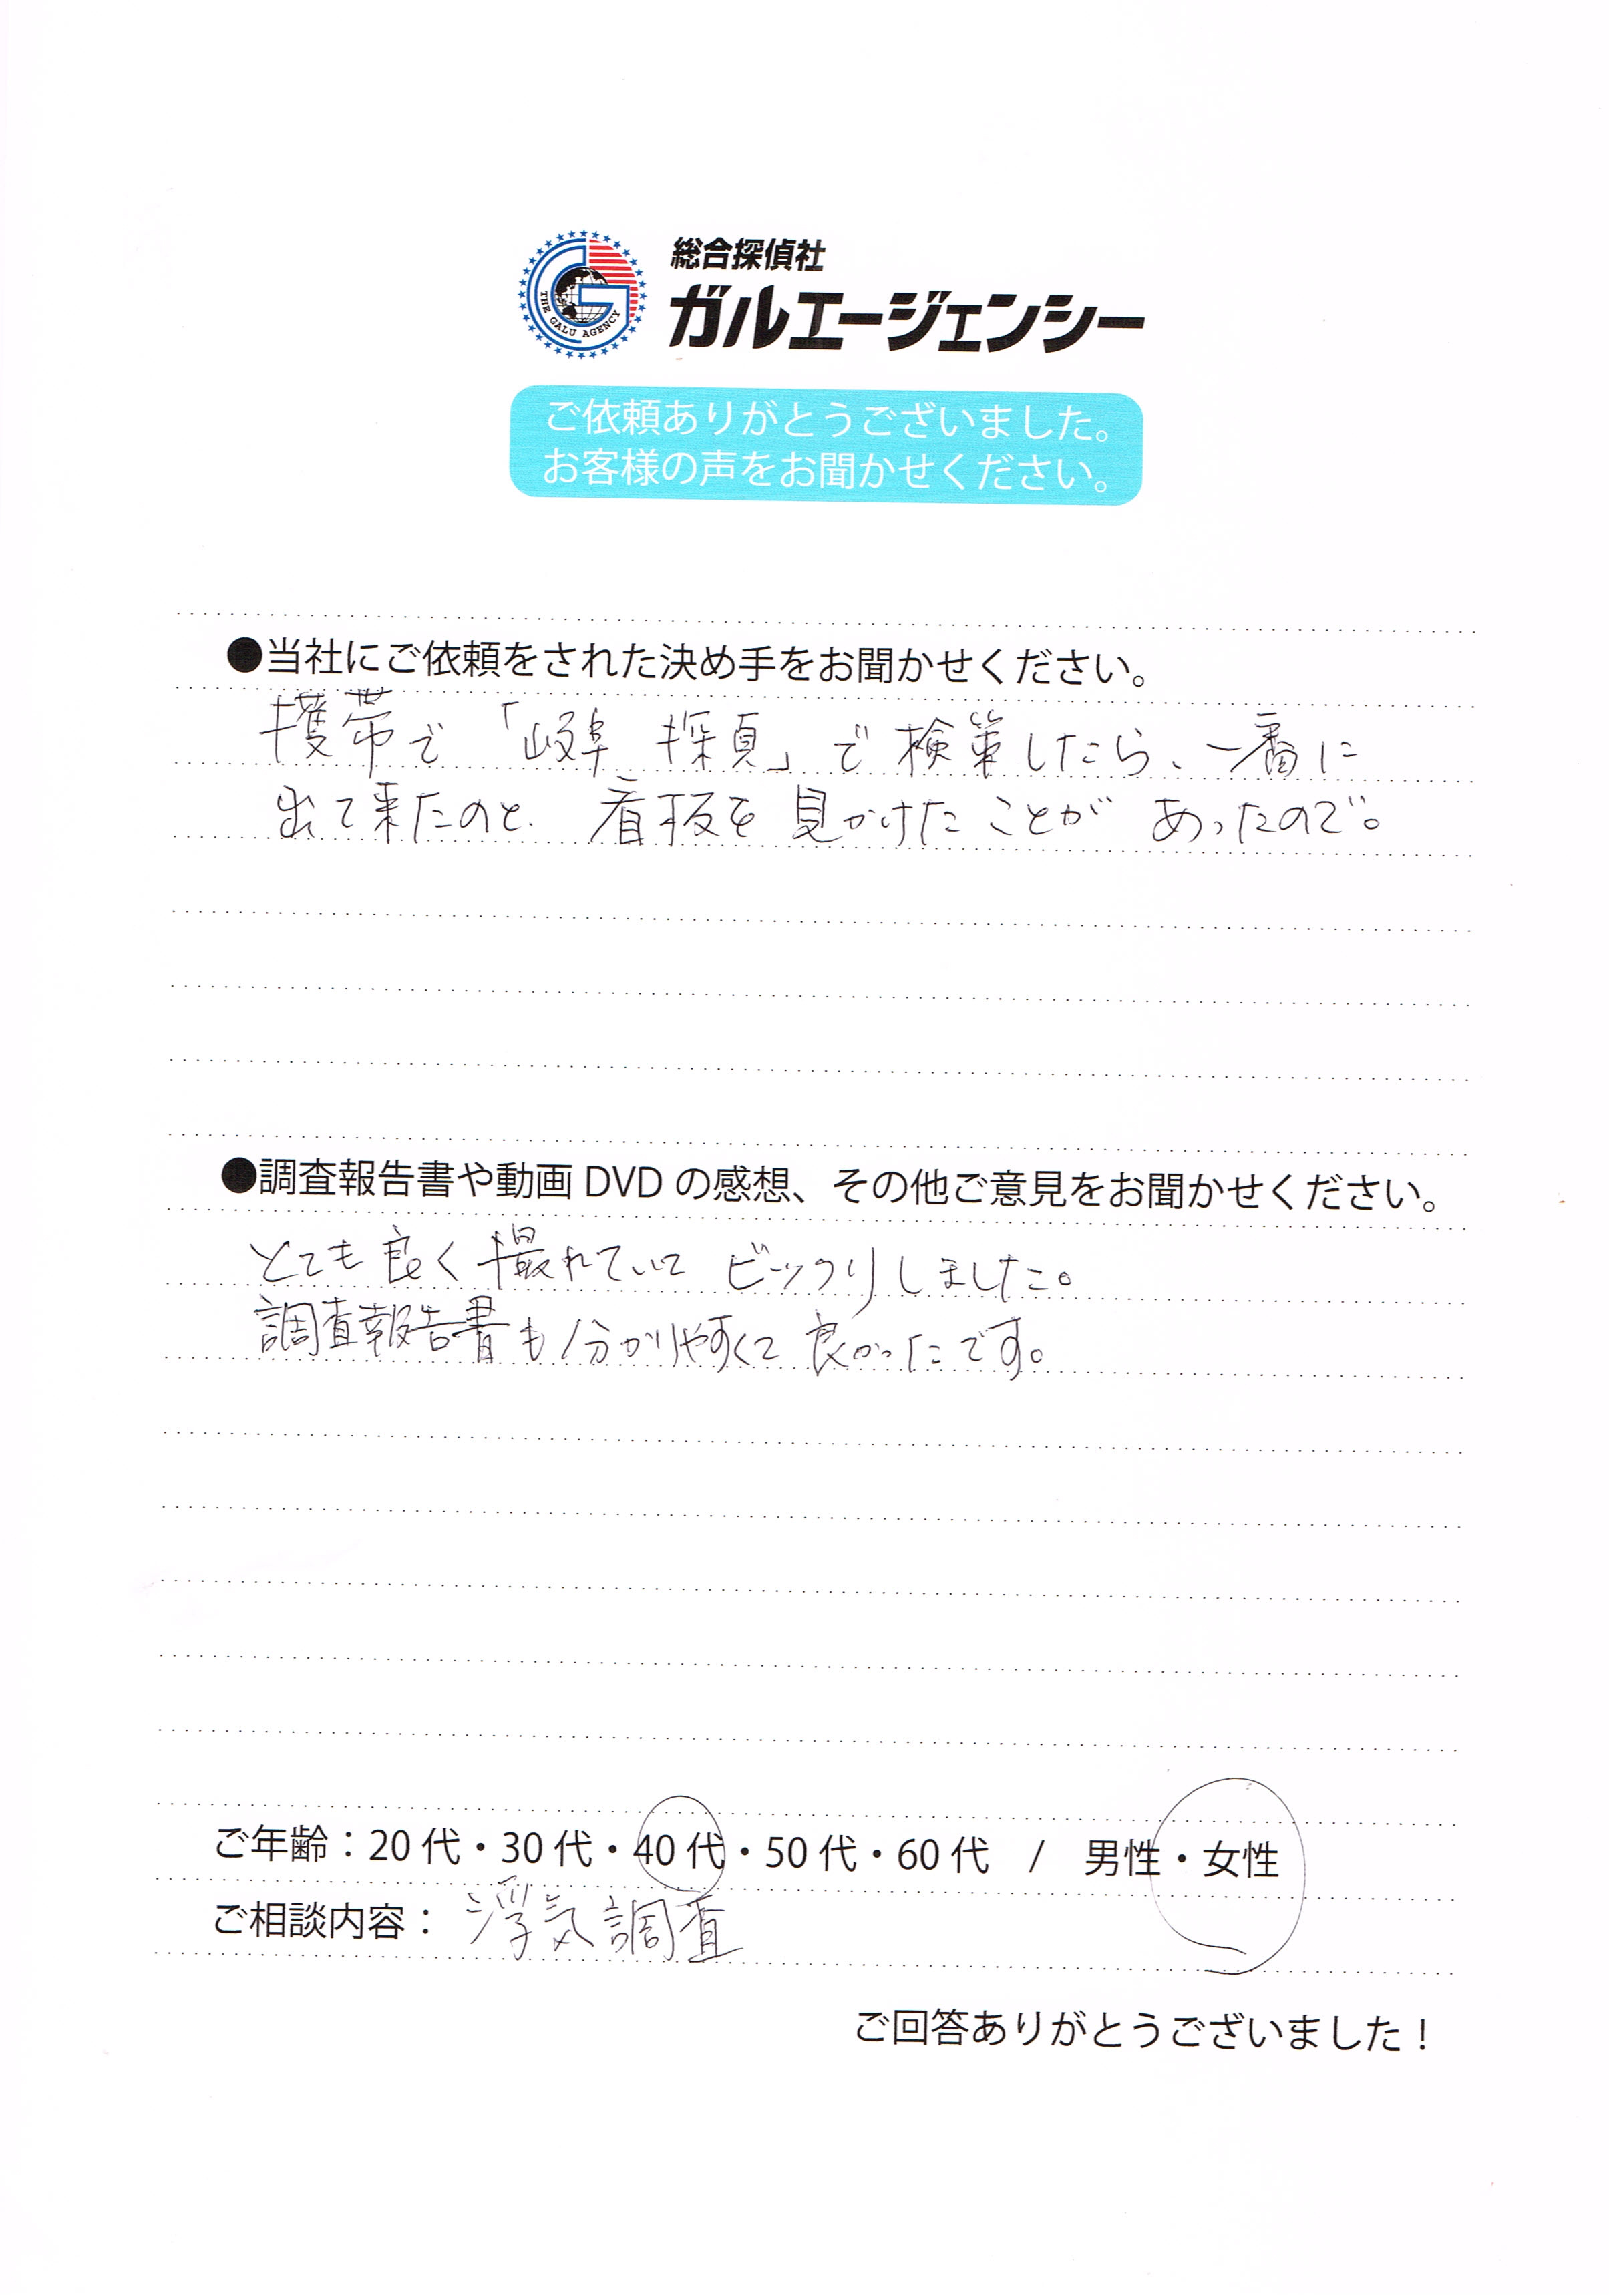 総合探偵社
ガルエージェンシー
THE GALU AGENCY
ご依頼ありがとうございました。
お客様の声をお聞かせください。
●当社にご依頼をされた決め手をお聞かせください。
携帯で「岐阜 探偵」で検索したら、一番に
出て来たのと、看板を見かけたことがあったので。
●調査報告書や動画 DVD の感想、その他ご意見をお聞かせください。
とても良く撮れていてビックリしました。
調査報告書も分かりやすくて良かったです。
ご年齢：20 代・30 代・40 代・50 代・60 代 / 男性・女性
ご相談内容： 浮気調査
ご回答ありがとうございました！